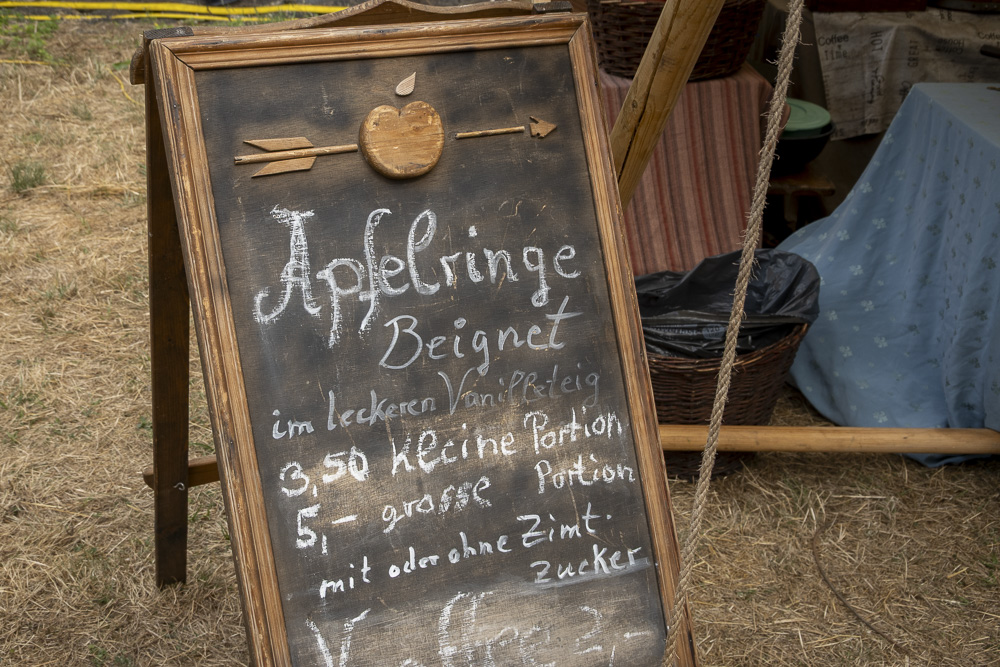 Apfelringe
Beignet
im leckeren Vanilleteig
3,50 kleine Portion
5,- grosse Portion
mit oder ohne Zimt.
zucker.
2,-
Coffee